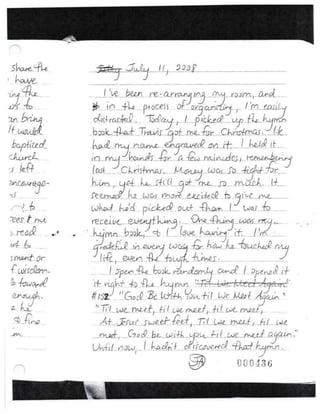 share the
have
ing the
us to
an bring
It would
baptized
church
s left
encourage-
to
rest me
read
ut to
sment or
f wisdom.
s toward
enough.
a he
to find
m
July 11, 2008
I've been re-arranging my room, and
in the process of organizing, I'm easily
distracted. Today, I picked up the hymn
book that Travis got me for Christmas. He
had my name engraved on it. I held it
in my hands for a few minutes, remembering
last Christmas. Money was so tight for
him, yet he still got me so much. It
seemed he was more excited to give me
what he'd picked out than I was to
receive everything. One thing was my
hymn book, & I love having it. I'm
grateful in every way for how he touched my
life, even the tough times.
I open the book randomly and I opened it
it right to the hymn "Til We Meet Again"
#152 "God Be With You til We Meet Again."
"Til we meet, til we meet, til we meet,
At Jesus' sweet feet, Til we meet, til we
meet, God be with you til we meet again."
Until now, I hadn't discovered that hymn.
000436